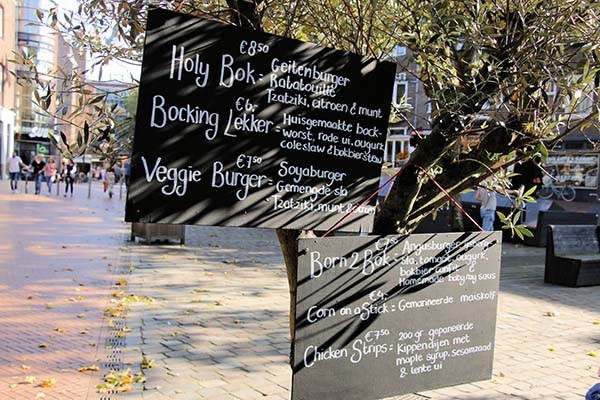 €8⁵⁰
Holy Bok = Geitenburger
Ratatouille
Tzatziki, citroen & munt
€6,-
Bocking Lekker = Huisgemaakte bock-
worst, rode ui, augurk
coleslaw & bokbiersteruw
€7⁵⁰
Veggie Burger = Soyaburger
Gemengde sla
Tzatziki, munt &
Born 2 Bok = Angusburger
sla, tomaat, augurk,
bokbier confit &
Homemade baby ray saus
€4,-
Corn on a Stick = Gemarineerde maiskolf
€7⁵⁰
Chicken Strips = 200 gr gepaneerde
Kippendijen met
maple syrup, sesamzaad
& lente ui